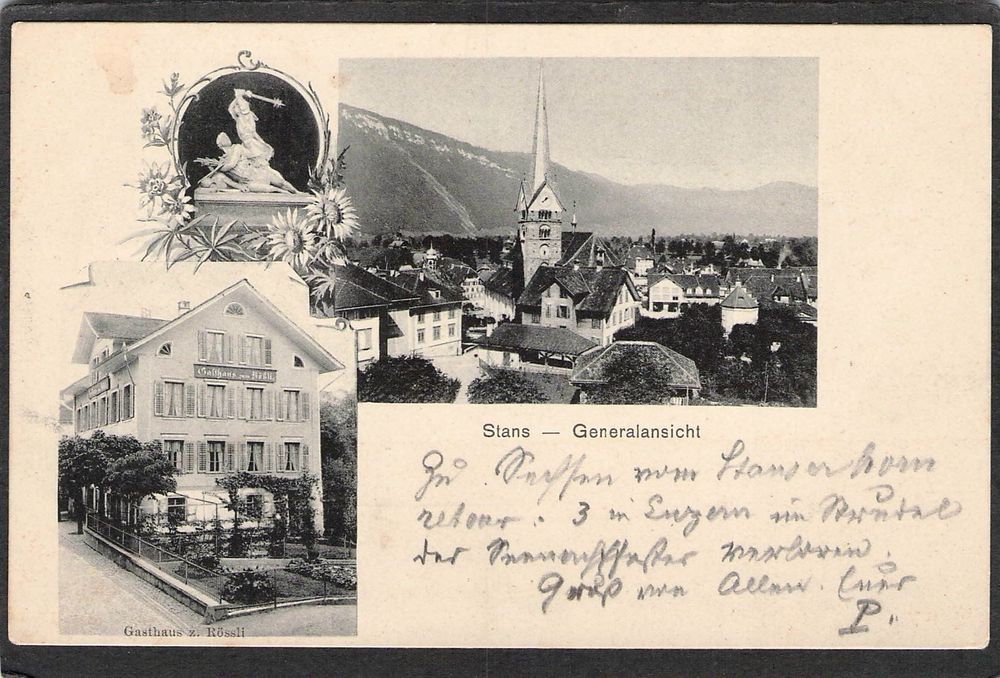 Gasthaus zum Rößli
Stans — Generalansicht
Zu Sechsen vom Stanserhorn
retour. 3 in Luzern im Strudel
der Seenachtfester verloren.
Gruß von Allen. Euer
P.
Gasthaus z. Rössli